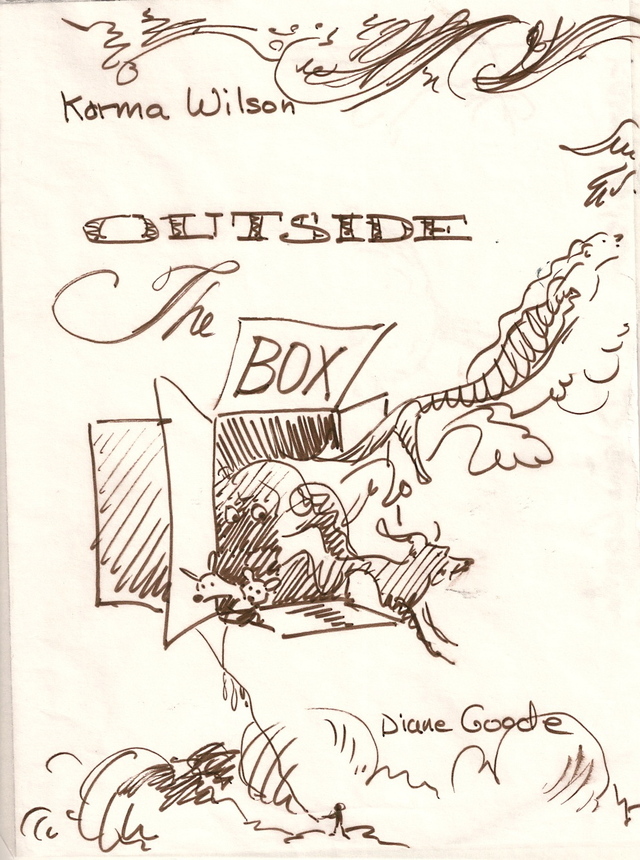 Karma Wilson
OUTSIDE
The
BOX
Diane Goode